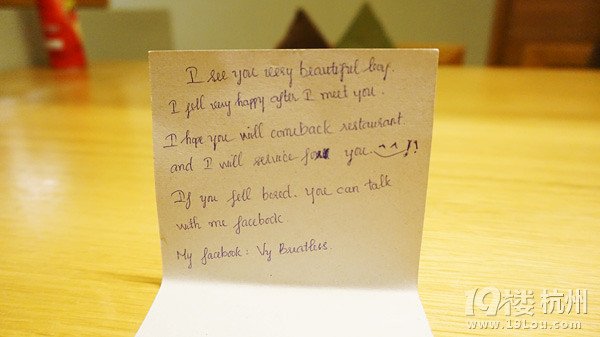 I see you very beautiful boy.
I fell very happy after I meet you.
I hope you will comeback restaurant
and I will service for you ^^!!
If you fell bored. you can talk
with me facebook
My facebook: Vy Breatless.
19楼 杭州
www.19lou.com